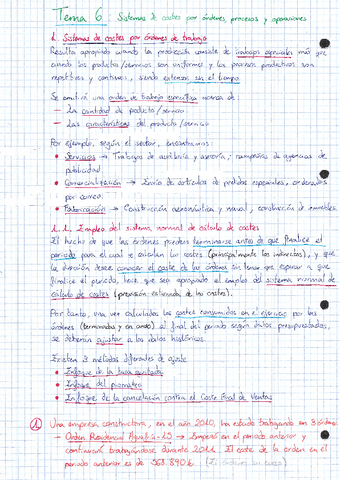 Tema 6: Sistemas de costes por órdenes, procesos y operaciones
1. Sistemas de costes por órdenes de trabajo
Resulta apropiado cuando la producción consiste de trabajos especiales más que
cuando los productos/servicios son uniformes y los procesos productivos son
repetitivos y continuos, siendo extensos en el tiempo
Se emitirá una orden de trabajo específica acerca de:
- La cantidad de producto/servicio
- Las características del producto/servicio
Por ejemplo, según el sector, encontramos:
• Servicios → Trabajos de auditoría y asesoría, campañas de agencias de
publicidad.
• Comercialización → Envío de artículos de pedidos especiales, ordenados
por correo.
• Fabricación → Construcción aeronáutica y naval, construcción de inmuebles.
1.1. Empleo del sistema normal de cálculo de costes
El hecho de que las órdenes puedan terminarse antes de que finalice el
período para el cual se calculan los costes (principalmente los indirectos), y que
la dirección desee conocer el coste de las órdenes sin tener que esperar a que
finalice el período, hace que sea apropiado el empleo del sistema normal de
cálculo de costes (previsión estimada de los costes).
Por tanto, una vez calculados los costes consumidos en el ejercicio por las
órdenes (terminadas y en curso) al final del período según datos presupuestados,
se deberán ajustar a los datos históricos.
Existen 3 métodos diferentes de ajuste
• Enfoque de la tasa ajustada
• Enfoque del prorrateo
• Enfoque de la cancelación contra el Coste Final de Ventas
1) Una empresa constructora, en el año 2010, ha estado trabajando en 3 órdenes:
- Orden Residencial → Empezó en el período anterior y
continuará trabajándose durante 2011. El coste de la orden en el
período anterior es de 968.890 €.